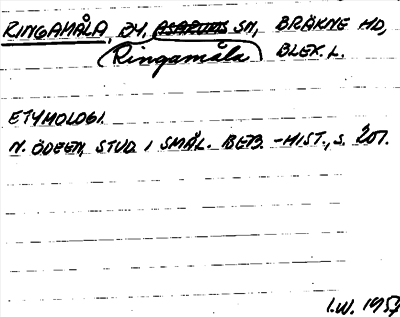 RINGAMÅLA, BY, ASARUMS SN, BRÄKNE HD,
Ringamåla BLEK. L.
ETYMOLOGI.
N. ÖDEEN, STUD. I SMÅL. BEB. -HIST., S. 207.
I.W. 1957